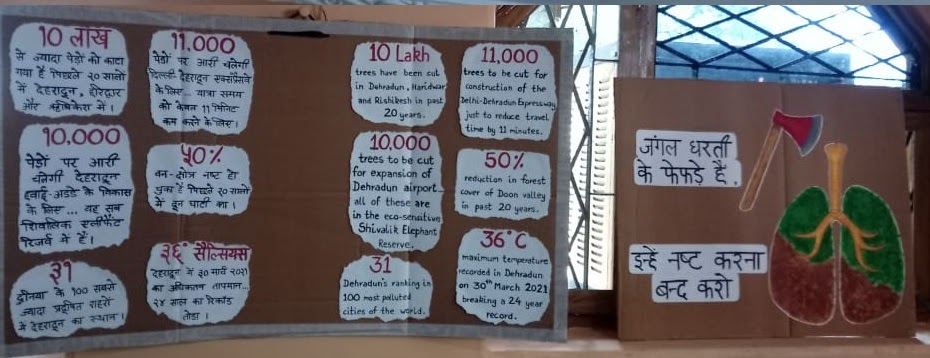 10 लाख
से ज्यादा पेड़ों को काटा
गया है पिछले २० सालों
में देहरादून, हरिद्वार
और ऋषिकेश में।
11,000
पेड़ों पर आरी चलेगी
दिल्ली-देहरादून एक्सप्रेसवे
के लिए... यात्रा समय
को केवल 11 मिनिट
कम करने के लिए।
10,000
पेड़ों पर आरी
चलेगी देहरादून
हवाई-अडडे के विकास
के लिए... यह सब
शिवालिक एलीफेंट
रिजर्व में है।
५०%
वन-क्षेत्र नष्ट हो
चुका है पिछले २० सालों
में दून घाटी का।
३१
दुनिया के 100 सबसे
ज्यादा प्रदूषित शहरों
में देहरादून का स्थान।
३६° सैल्सियस
देहरादून में ३० मार्च २०२१
का अधिकतम तापमान...
२४ साल का रिकॉर्ड
तोड़ा।
10 Lakh
trees have been cut
in Dehradun, Haridwar
and Rishikesh in past
20 years.
11,000
trees to be cut for
construction of the
Delhi-Dehradun Expressway
just to reduce travel
time by 11 minutes.
10,000
trees to be cut
for expansion of
Dehradun airport...
all of these are
in the eco-sensitive
Shivalik Elephant
Reserve.
50%
reduction in forest
cover of Doon valley
in past 20 years.
31
Dehradun's ranking in
100 most polluted
cities of the world.
36°C
maximum temperature
recorded in Dehradun
on 30th March 2021
breaking a 24 year
record.
जंगल धरती
के फेफड़े है.
इन्हें नष्ट करना
बन्द करो